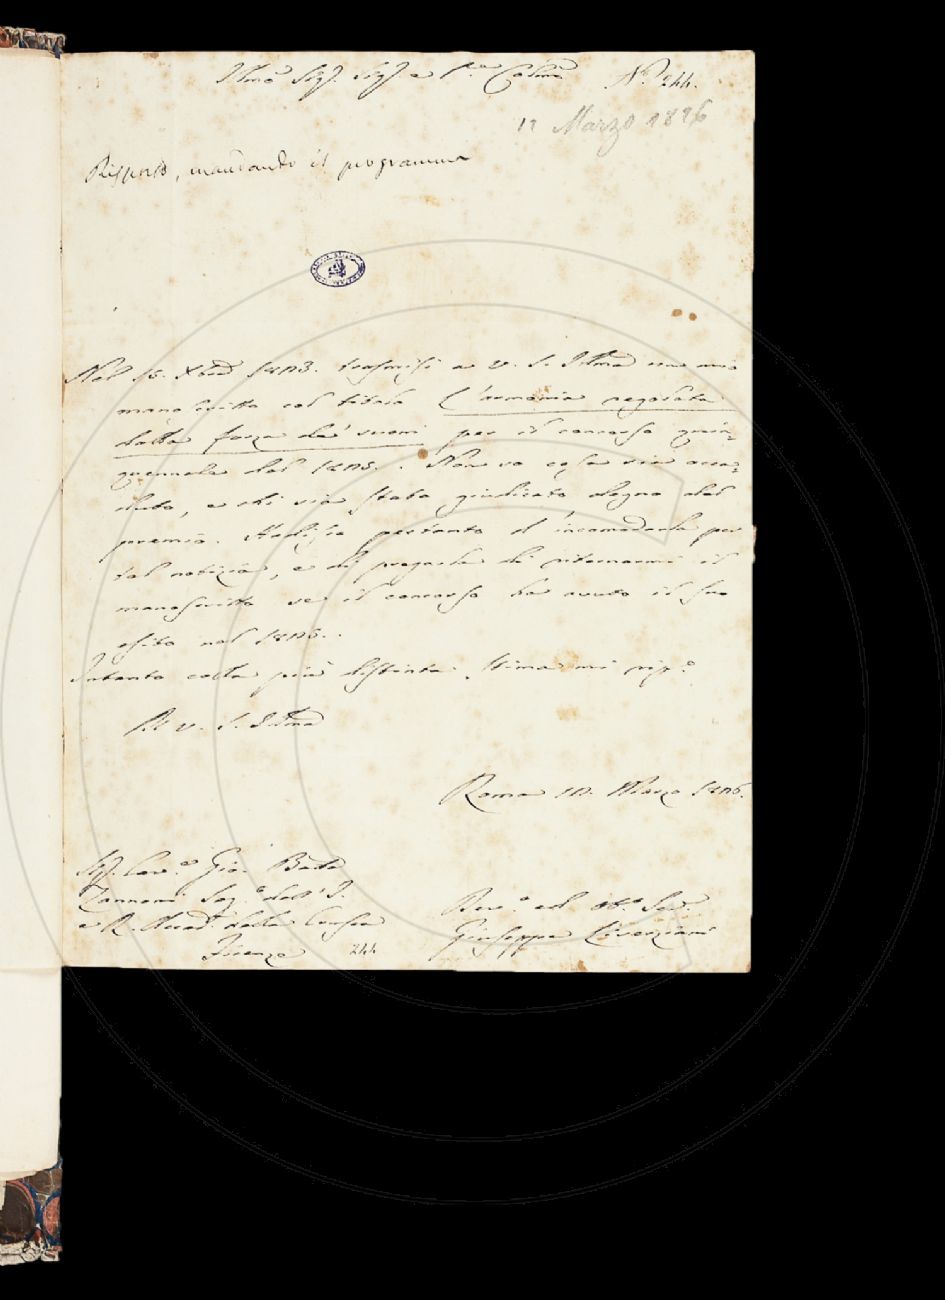 Illmo Sig. Sig. e P.ne Colmo
N.° 244.
12 Marzo 1826
Risposto, mandando il programma
Nel 15. Xbre 1823. trasmisi a V. S. Illma un mio
manoscritto col titolo L'armonia regolata
dalla forza de' suoni per il concorso quin-
quennale del 1825. . Non so cosa sia acca-
duto, e chi sia stato giudicato degno del
premio. Ardisco pertanto d'incomodarla per
tal notizia, e di pregarla di ritornarmi il
manoscritto se il concorso ha avuto il suo
esito nel 1825. .
Intanto colla più distinta stima mi rip.°
Di V. S. Illma
Roma 12. Marzo 1826.
Sig. Cav.re Gio. Batta
Zannoni Seg.° dell' I.
e R. Accad. della Crusca
Firenze
244
Dev.° ed Ob.° Ser.
Giuseppe Liverziani